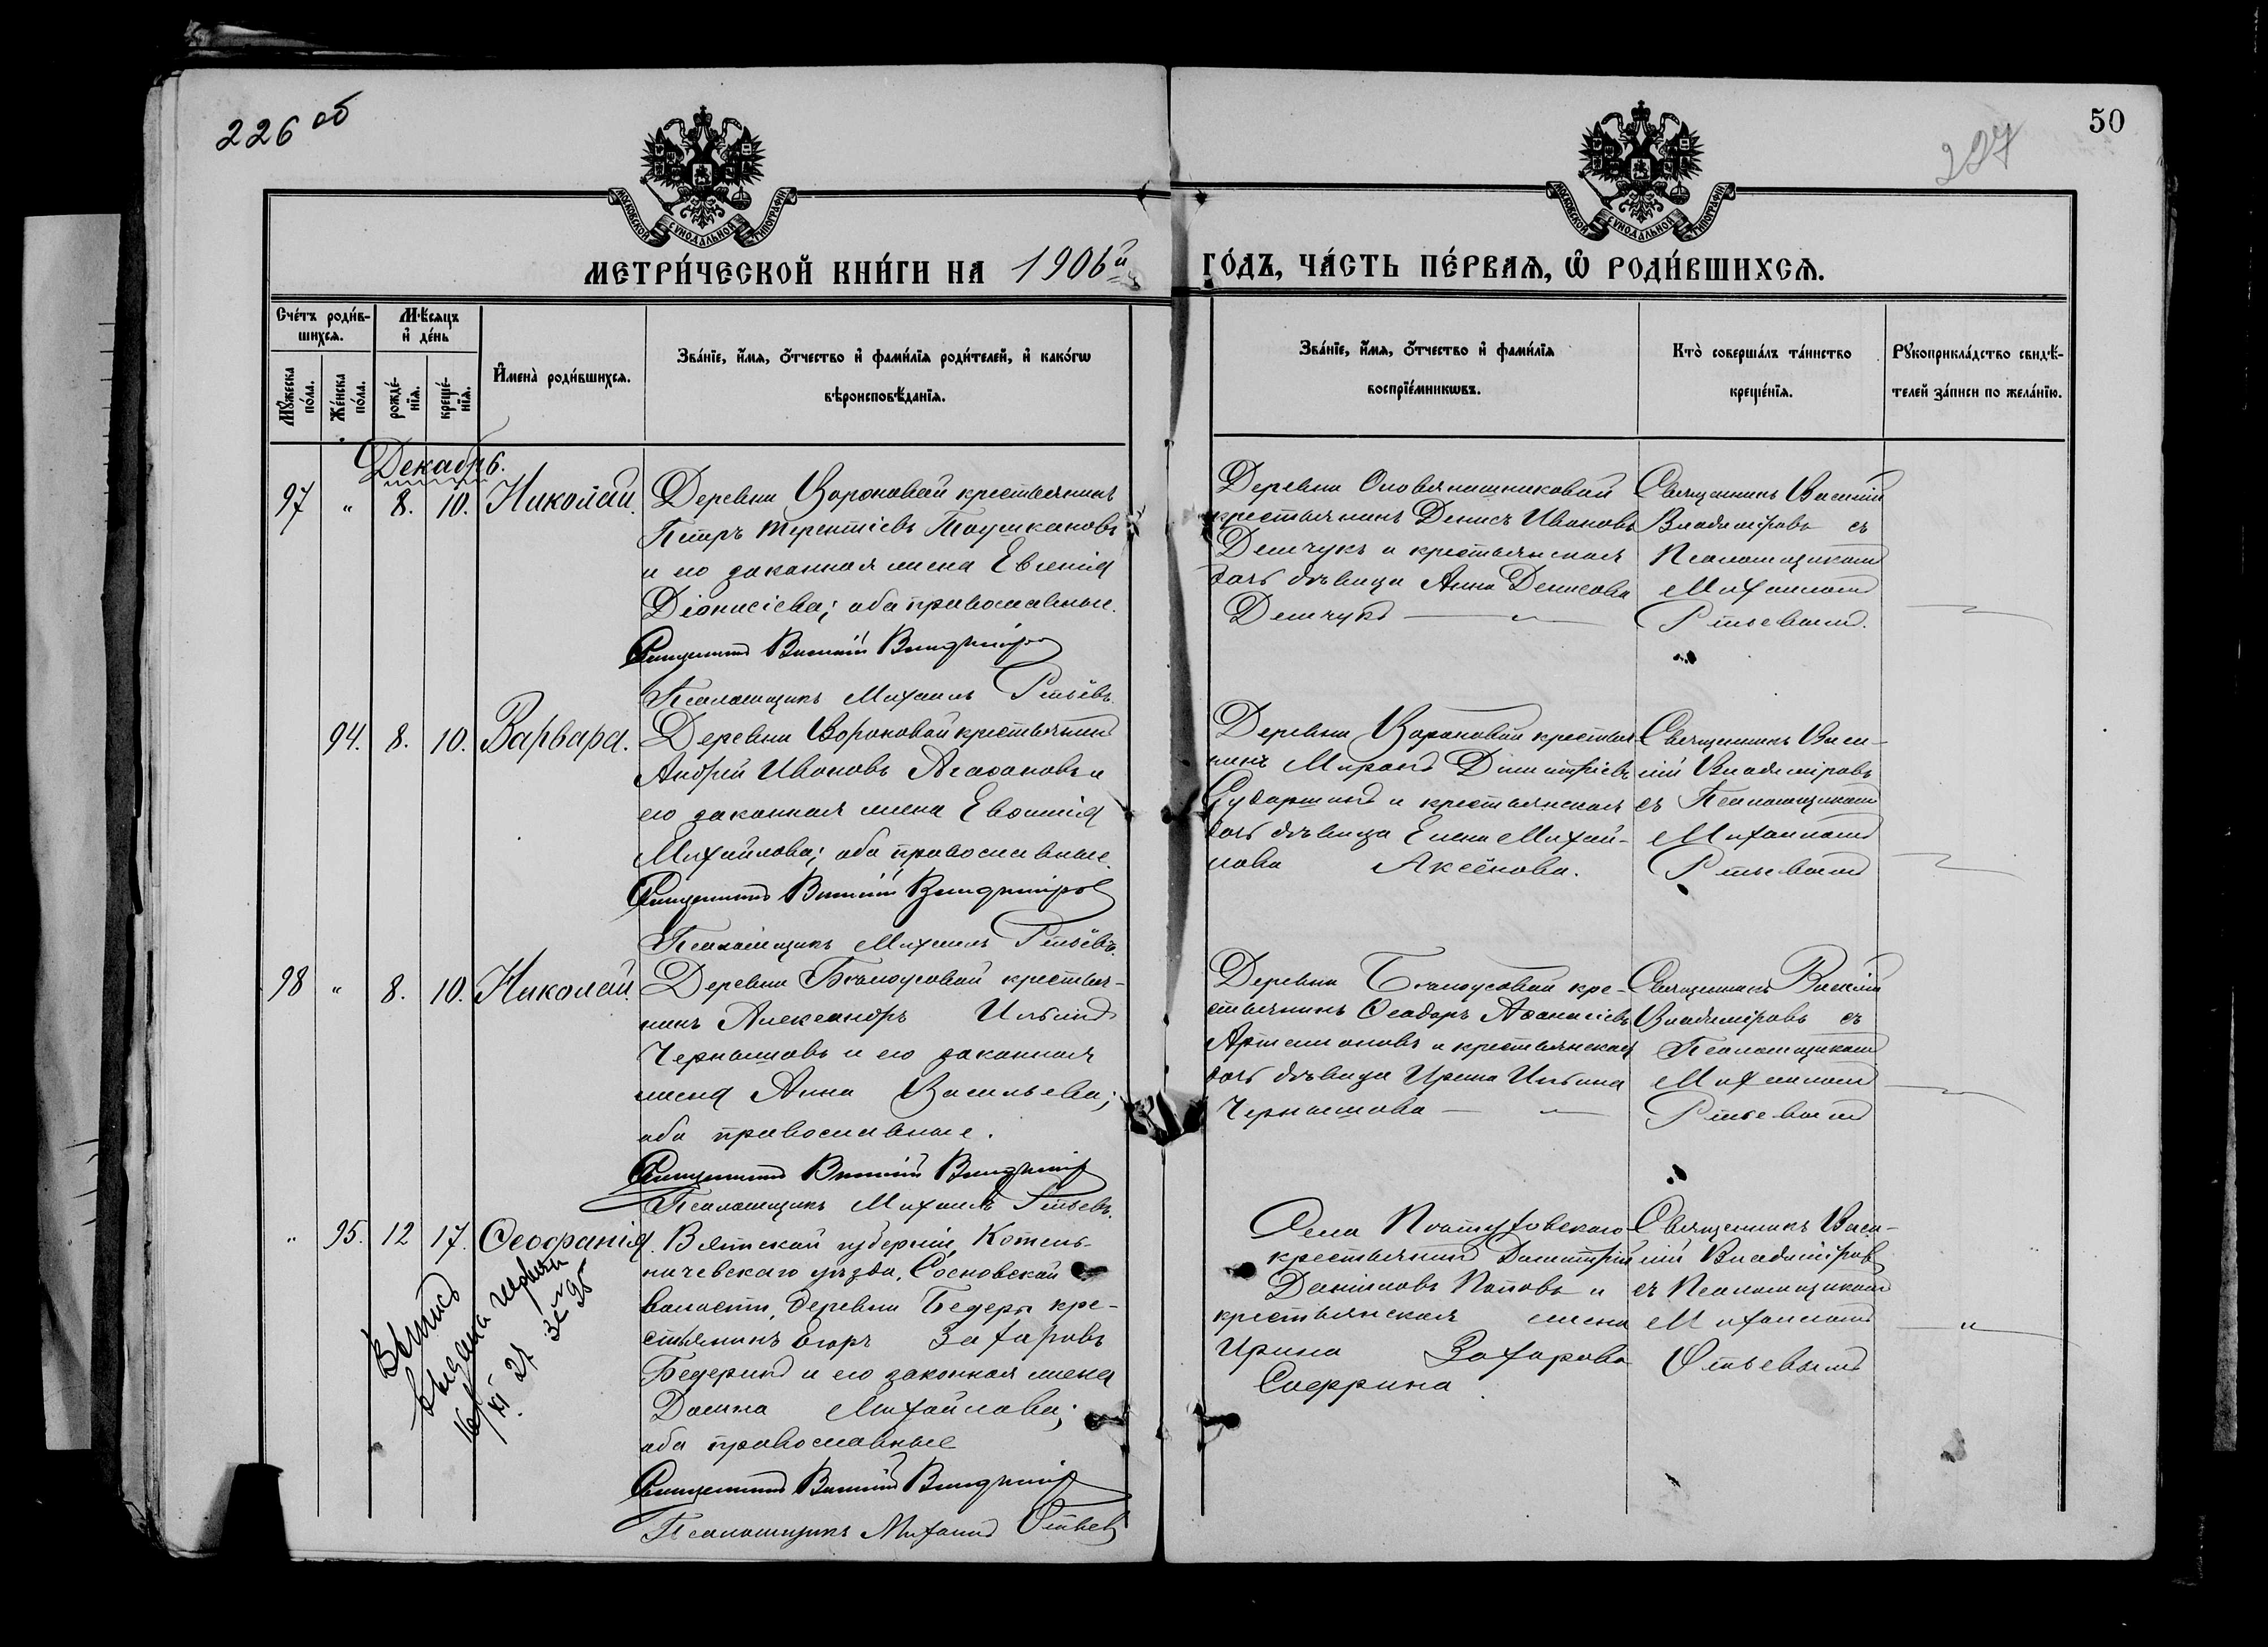 226 об
50
227
МОСКОВСКОЙ СѴНОДАЛЬНОЙ ТИПОГРАФІИ
МОСКОВСКОЙ СѴНОДАЛЬНОЙ ТИПОГРАФІИ
МЕТРИ́ЧЕСКОЙ КНИ́ГИ НА 1906й ГО́ДЪ, ЧА́СТЬ ПЕ́РВАѦ, Ѡ҆ РОДИ́ВШИХСѦ.
Сче́тъ роди́в-
шихсѧ.
Мꙋ́жеска по́ла.
Же́нска по́ла.
Мѣ́сѧцъ
и҆ де́нь
рожде́-
нїѧ.
креще́-
нїѧ.
И҆мена̀ роди́вшихсѧ.
Зва́нїе, и҆́мѧ, ѻ҆́тчество и҆ фами́лїѧ роди́телей, и҆ како́гѡ
вѣроисповѣ́данїѧ.
Зва́нїе, и҆́мѧ, ѻ҆́тчество и҆ фами́лїѧ
воспрїе́мникѡвъ.
Кто̀ соверша́лъ та́инство
креще́нїѧ.
Рꙋкоприкла́дство свидѣ́-
телей за́писи по жела́нїю.
Декабрь.
97 " 8. 10. Николай.
Деревни Вороновой крестьянинъ
Петръ Терентіевъ Таушкановъ
и его законная жена Евгенія
Діонисіева; оба православные.
Священникъ Василій Владиміровъ
Псаломщикъ Михаилъ
Деревни Оловянишниковой
крестьянинъ Денисъ Ивановъ
Демчукъ и крестьянская
дочь дѣвица Анна Денисова
Демчукъ
Священникъ Василій
Владиміровъ съ
Псаломщикомъ
Михаиломъ
94. 8. 10. Варвара.
Деревни Вороновой крестьянинъ
Андрей Ивановъ Агафоновъ и
его законная жена Евфимія
Михайлова; оба православные.
Священникъ Василій Владиміровъ
Псаломщикъ Михаилъ
Деревни Вороновой крестья-
нинъ Миронъ Димитріевъ
и крестьянская
дочь дѣвица Елена Михай-
лова Аксёнова.
Священникъ Васи-
лій Владиміровъ
съ Псаломщикомъ
Михаиломъ
98 " 8. 10. Николай.
Деревни Бѣлоусовой крестья-
нинъ Александръ Ильинъ
Чернышовъ и его законная
жена Анна Васильева;
оба православные.
Священникъ Василій Владиміровъ
Псаломщикъ Михаилъ
Деревни Бѣлоусовой кре-
стьянинъ Ѳеодоръ Аѳанасіевъ
Артемоновъ и крестьянская
дочь дѣвица Ирина Ильина
Чернышова
Священникъ Василій
Владиміровъ съ
Псаломщикомъ
Михаиломъ
" 95. 12 17. Ѳеофанія.
Выпись
выдана
Вятской губерніи, Котель-
ничевскаго уѣзда, Сосновской
волости, деревни кре-
стьянинъ Егоръ Захаровъ
и его законная жена
Домна Михайлова;
оба православные
Священникъ Василій Владиміровъ
Псаломщикъ Михаилъ
Села
крестьянинъ Димитрій
Даниловъ Поповъ и
крестьянская жена
Ирина Захарова
Священникъ Васи-
лій Владиміровъ
съ Псаломщикомъ
Михаиломъ